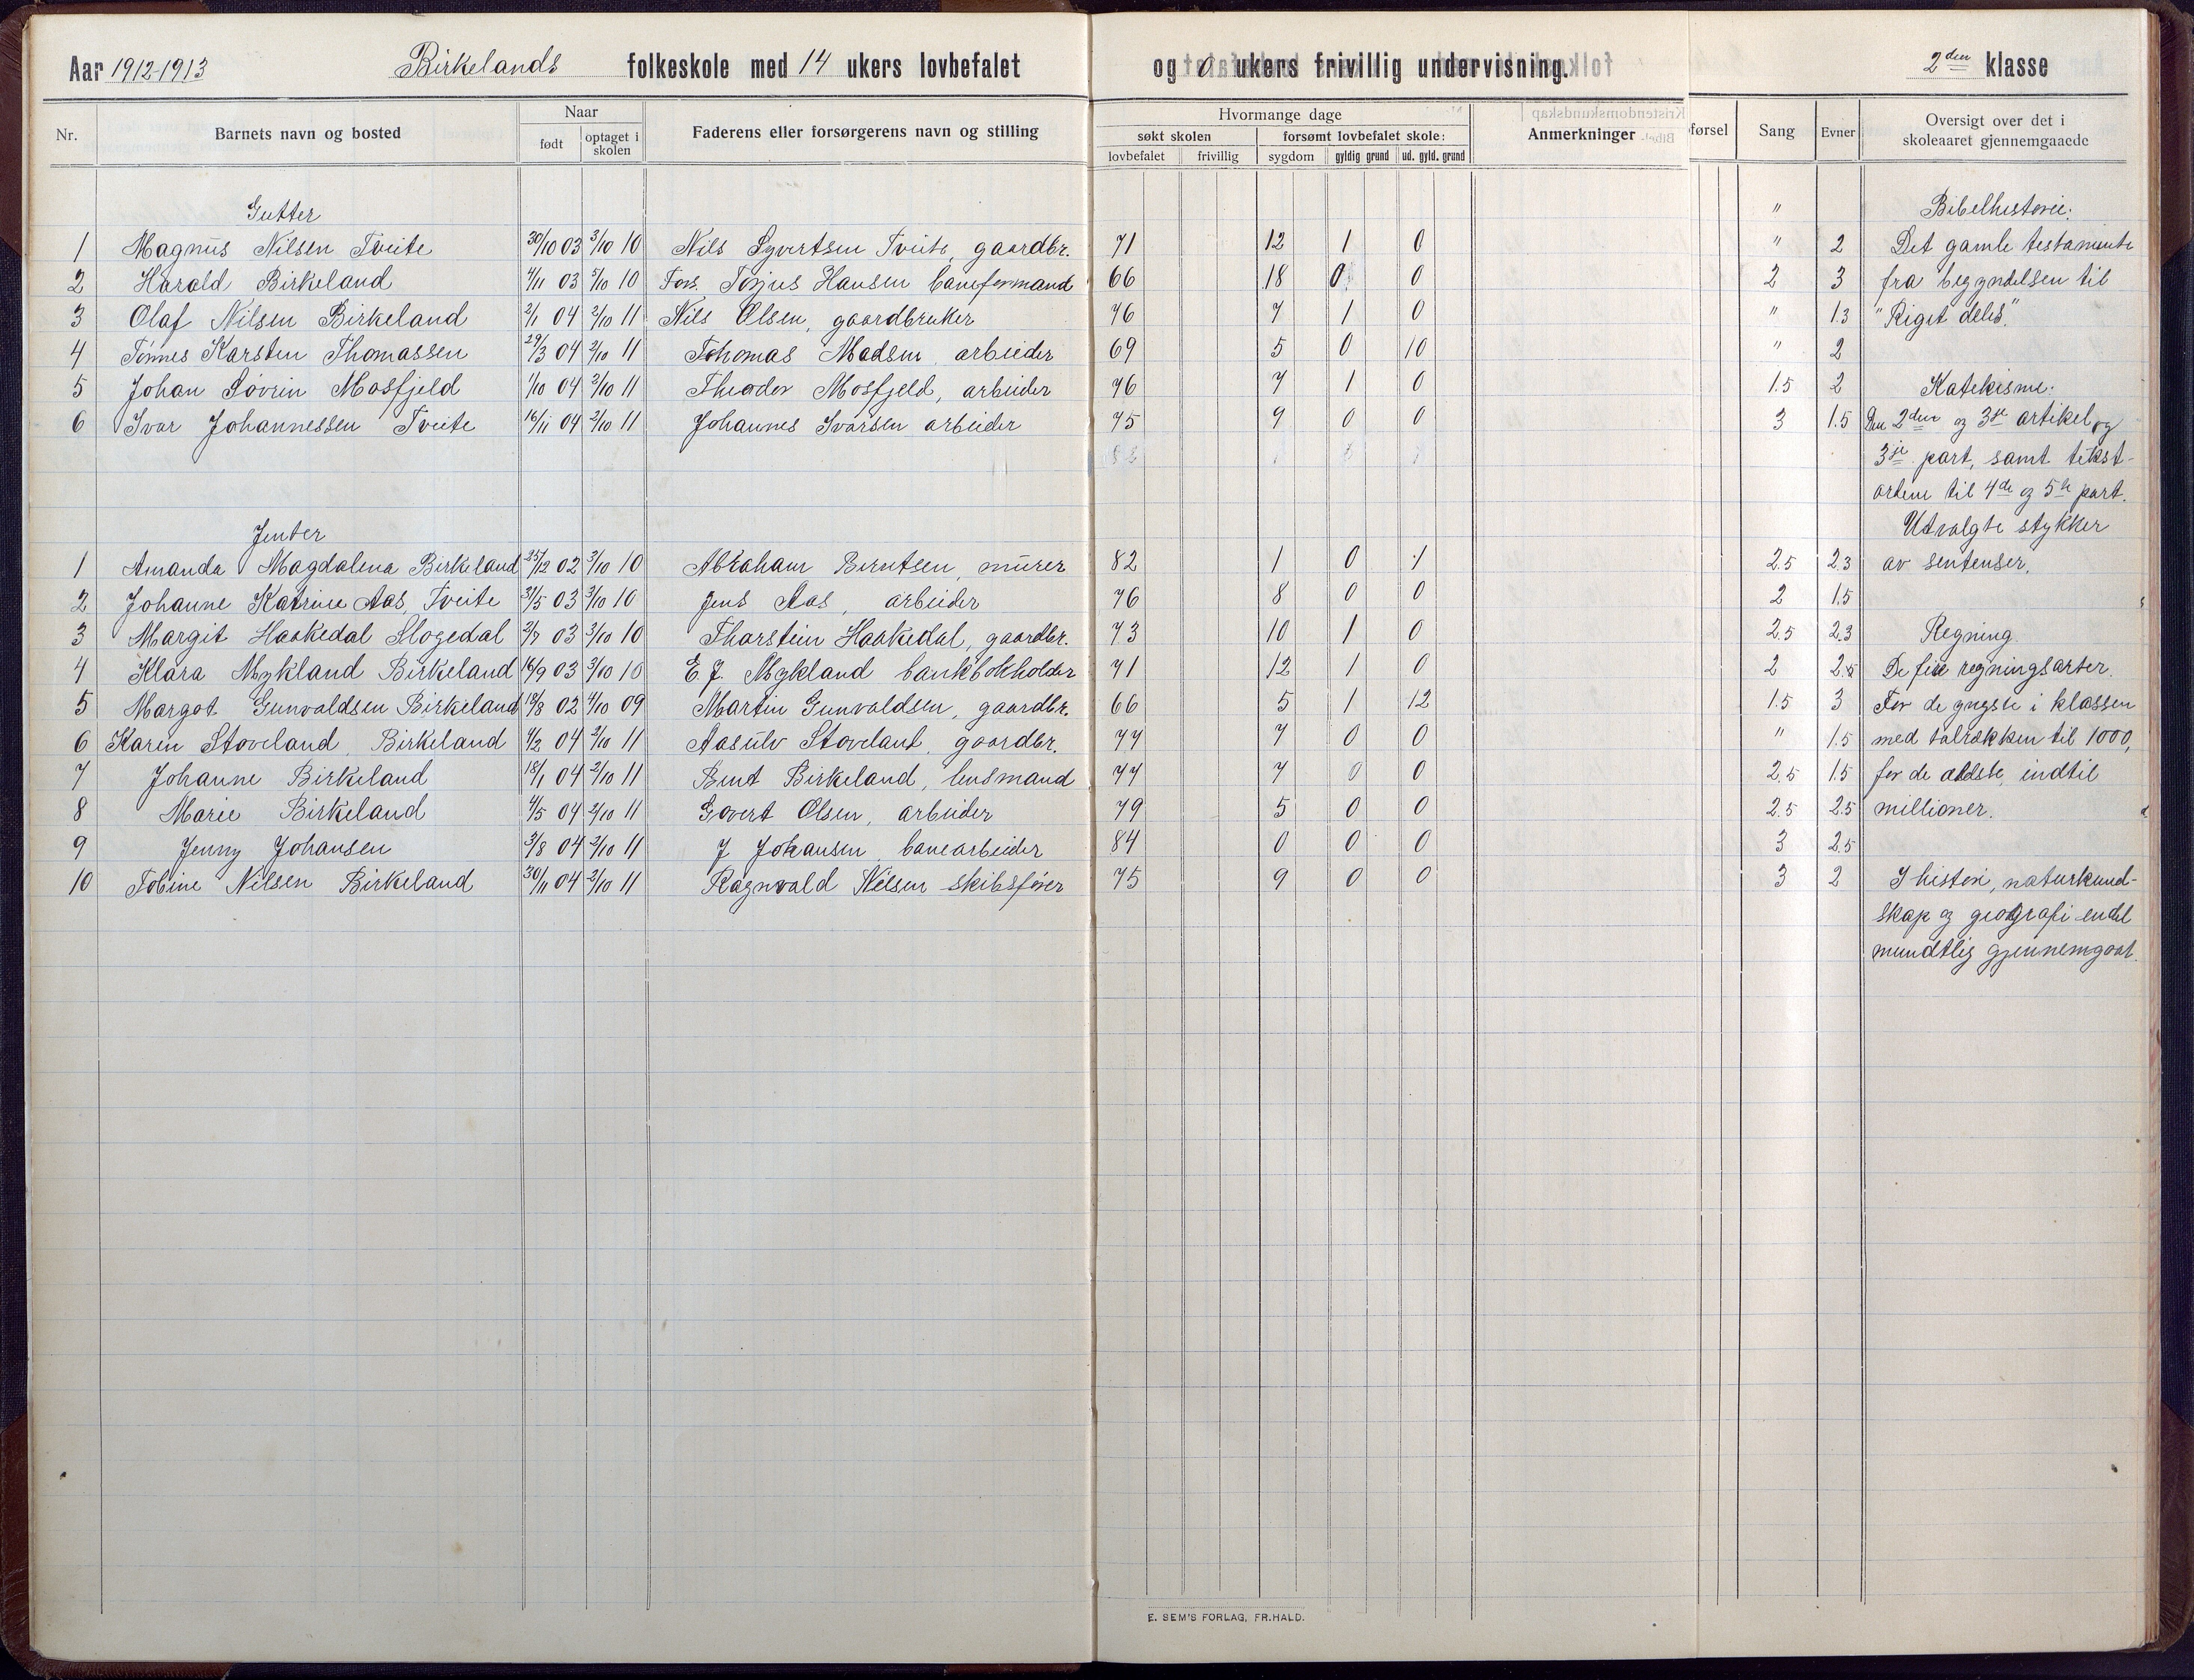 Aar 1912-1913 Birkelands folkeskole med 14 ukers lovbefalet og 0 ukers frivillig undervisning. 2den klasse
Nr. Barnets navn og bosted Naar født optaget i skolen Faderens eller forsørgerens navn og stilling Hvormange dage søkt skolen lovbefalet frivillig forsømt lovbefalet skole: sygdom gyldig grund ud. gyld. grund Anmerkninger førsel Sang Evner Oversigt over det i skoleaaret gjennemgaaede
Gutter " Bibelhistorie:
1 Magnus Nilsen Tveite 30/10 03 3/10 10 Nils Syvertsen Tveite, gaardbr. 71 12 1 0 " 2 Det gamle testamente
2 Harald Birkeland 4/11 03 5/10 10 Fors. Torjus Hansen baneformand 66 18 0 0 2 3 fra begyndelsen til
3 Olaf Nilsen Birkeland 2/1 04 2/10 11 Nils Olsen, gaardbruker 76 7 1 0 " 1.3 "Riget deles".
4 Tønnes Karsten Thomassen 29/3 04 2/10 11 Thomas Madsen arbeider 69 5 0 10 " 2
5 Johan Søvrin Mosfjeld 1/10 04 2/10 11 Theodor Mosfjeld, arbeider 76 7 1 0 1.5 2 Katekisme:
6 Ivar Johannessen Tveite 16/11 04 2/10 11 Johannes Ivarsen arbeider 75 9 0 0 3 1.5 Den 2den og 3je artikel og
3je part, samt tekst-
ordene til 4de og 5te part.
Jenter Utvalgte stykker
1 Amanda Magdalena Birkeland 25/12 02 3/10 10 Abraham Berntsen, murer 82 1 0 1 2.5 2.3 av sentenser.
2 Johanne Katrine Aas, Tveite 31/5 03 3/10 10 Jens Aas, arbeider 76 8 0 0 2 1.5
3 Margit Haakedal Slogedal 2/7 03 3/10 10 Thorstein Haakedal, gaardbr. 73 10 1 0 2.5 2.3 Regning.
4 Klara Mykland Birkeland 16/9 03 3/10 10 E. J. Mykland bankbokholder 71 12 1 0 2 2.5 De fire regningsarter.
5 Margot Gunvaldsen Birkeland 18/8 02 4/10 09 Martin Gunvaldsen, gaardbr. 66 5 1 12 1.5 3 For de yngste i klassen
6 Karen Stoveland, Birkeland 4/2 04 2/10 11 Aasulv Stoveland, gaardbr. 77 7 0 0 " 1.5 med talrækken til 1000,
7 Johanne Birkeland 18/1 04 2/10 11 Bent Birkeland, lensmand 77 7 0 0 2.5 1.5 for de ældste, indtil
8 Marie Birkeland 4/5 04 2/10 11 Govert Olsen, arbeider 79 5 0 0 2.5 2.5 millioner.
9 Jenny Johansen 3/8 04 2/10 11 J Johansen banearbeider 84 0 0 0 3 2.5
10 Tobine Nilsen Birkeland 30/11 04 2/10 11 Ragnvald Nilsen skibsfører 75 9 0 0 3 2 I historie, naturkund-
skap og geografi endel
mundtlig gjennemgaat.
E. SEM'S FORLAG, FR.HALD.